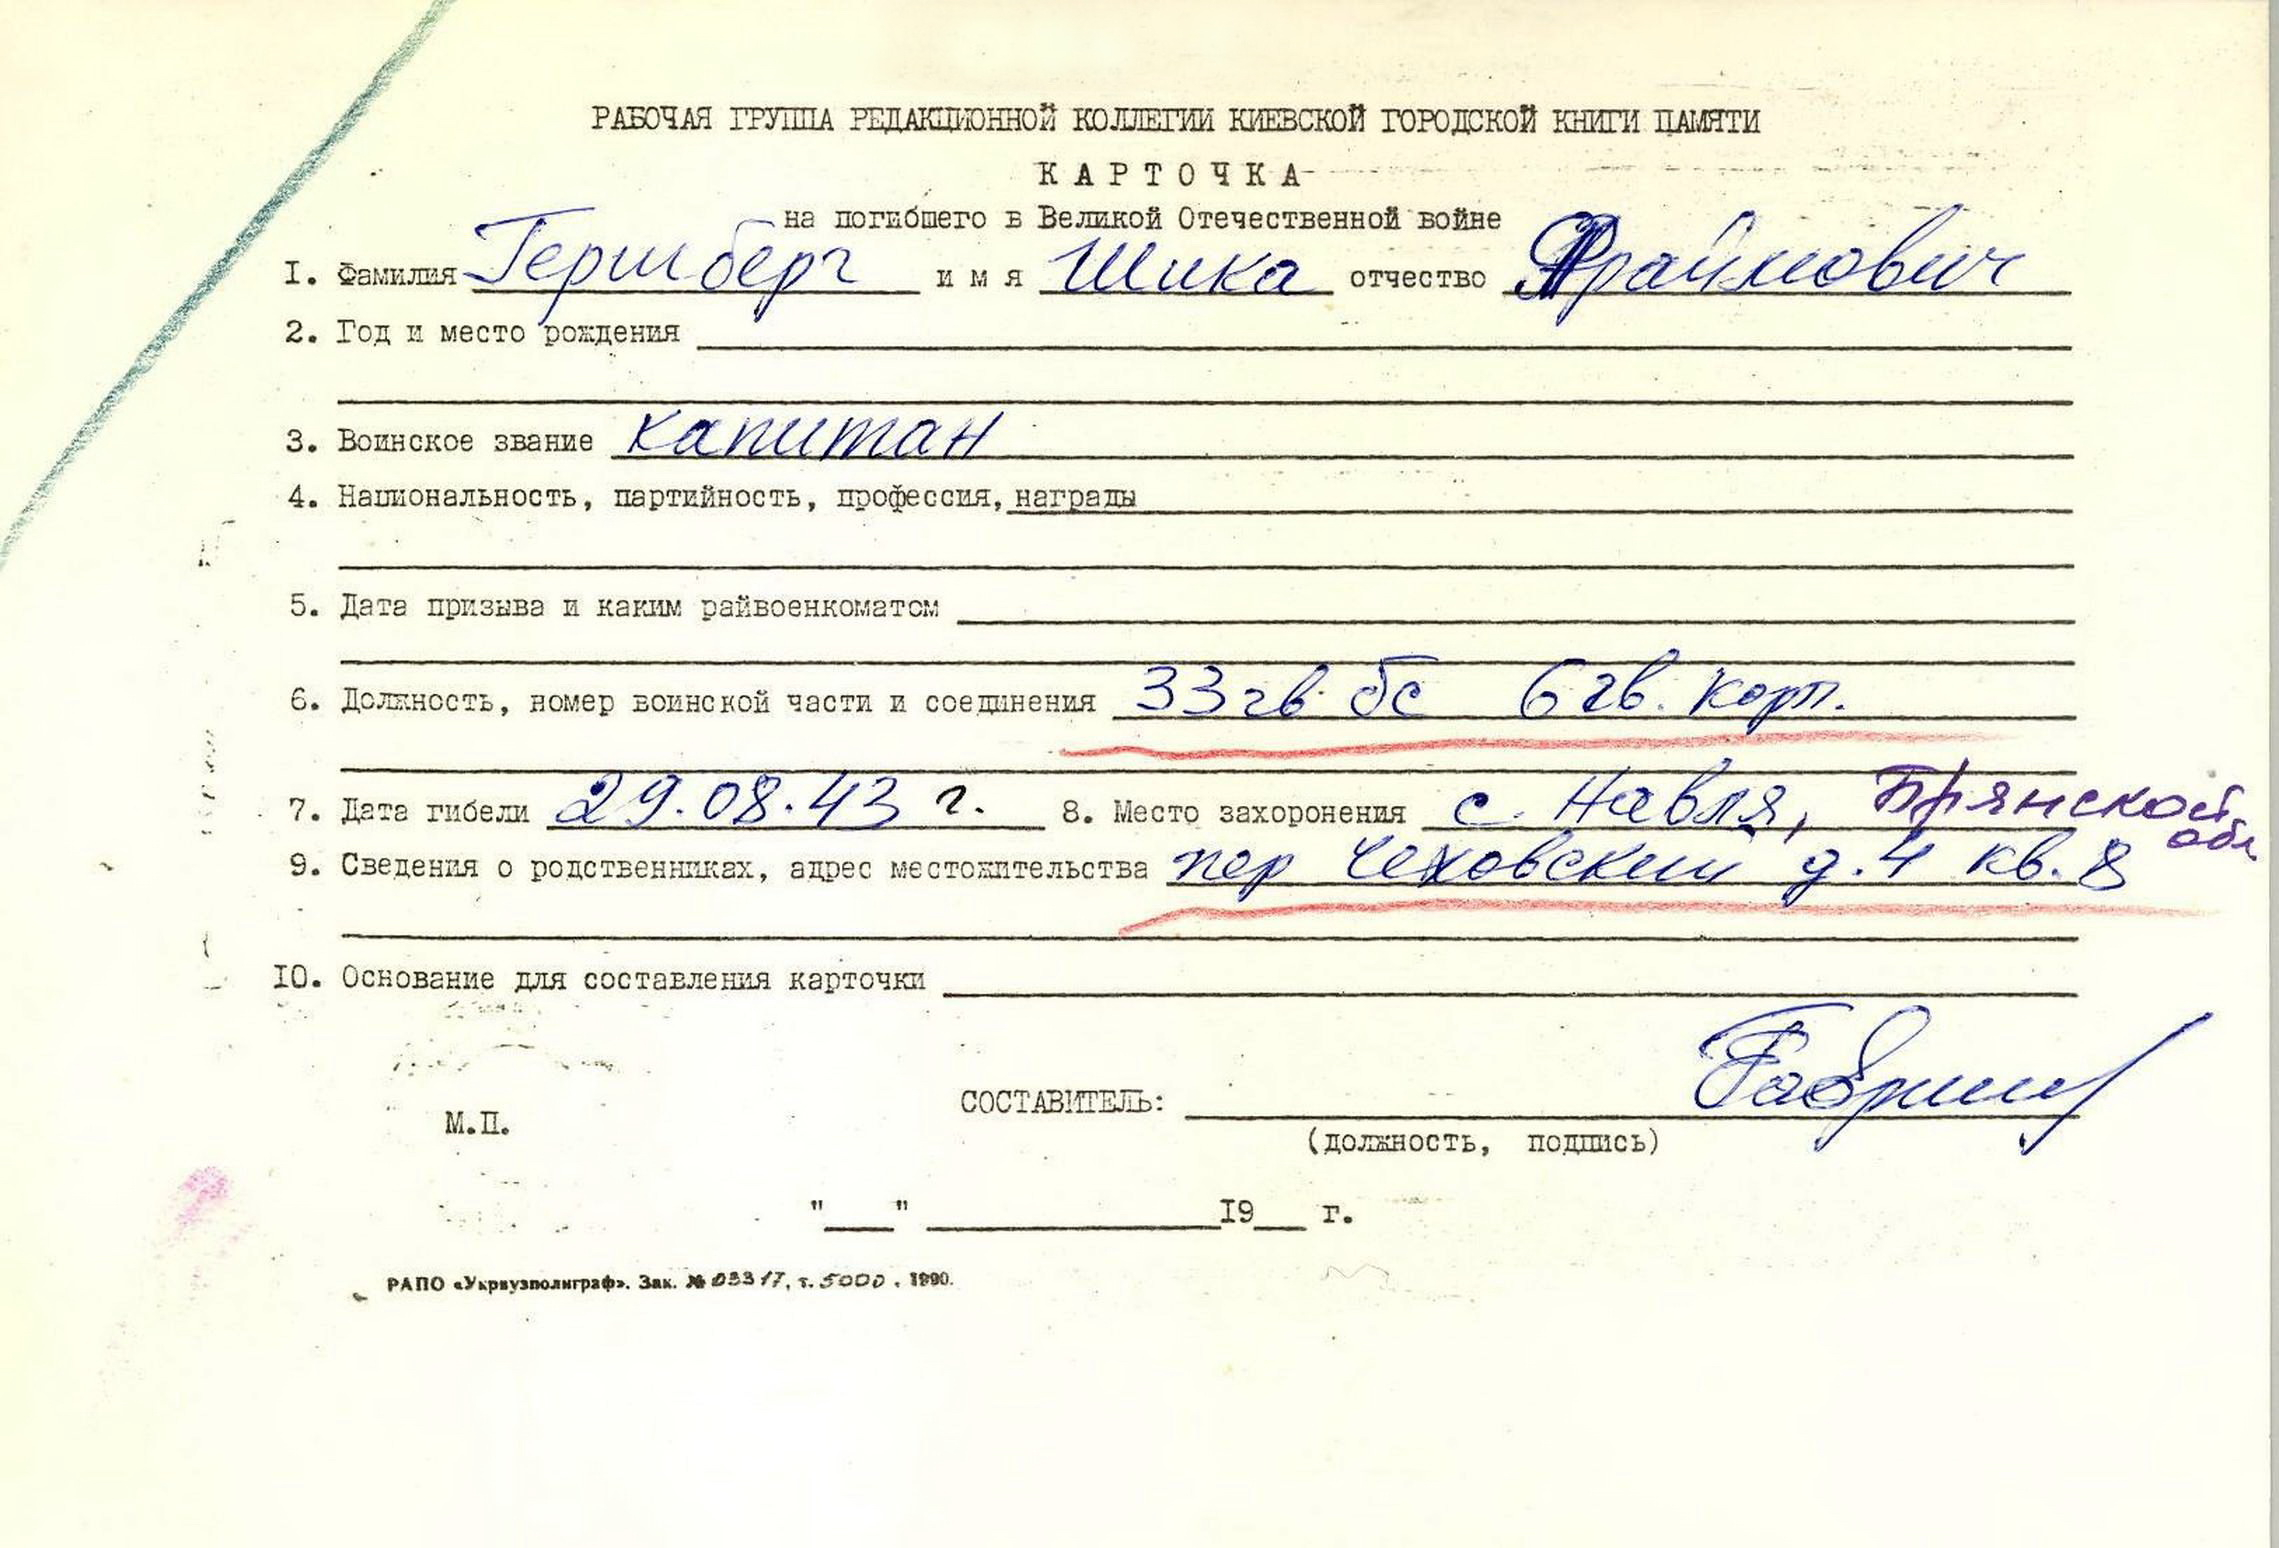 РАБОЧАЯ ГРУППА РЕДАКЦИОННОЙ КОЛЛЕГИИ КИЕВСКОЙ ГОРОДСКОЙ КНИГИ ПАМЯТИ
КАРТОЧКА
на погибшего в Великой Отечественной войне
I. Фамилия Гершберг имя Шика отчество Фраймович
2. Год и место рождения
3. Воинское звание капитан
4. Национальность, партийность, профессия, награды
5. Дата призыва и каким райвоенкоматом
6. Должность, номер воинской части и соединения 33 гв. бс 6 гв. корп.
7. Дата гибели 29.08.43 г. 8. Место захоронения с. Навля, Брянской обл.
9. Сведения о родственниках, адрес местожительства пер Чеховский д.4 кв.8
IO. Основание для составления карточки
СОСТАВИТЕЛЬ:
М.П.
(должность, подпись)
"___" ____________I9___ г.
РАПО «Укрвузполиграф». Зак. № 03317, т. 5000. 1990.